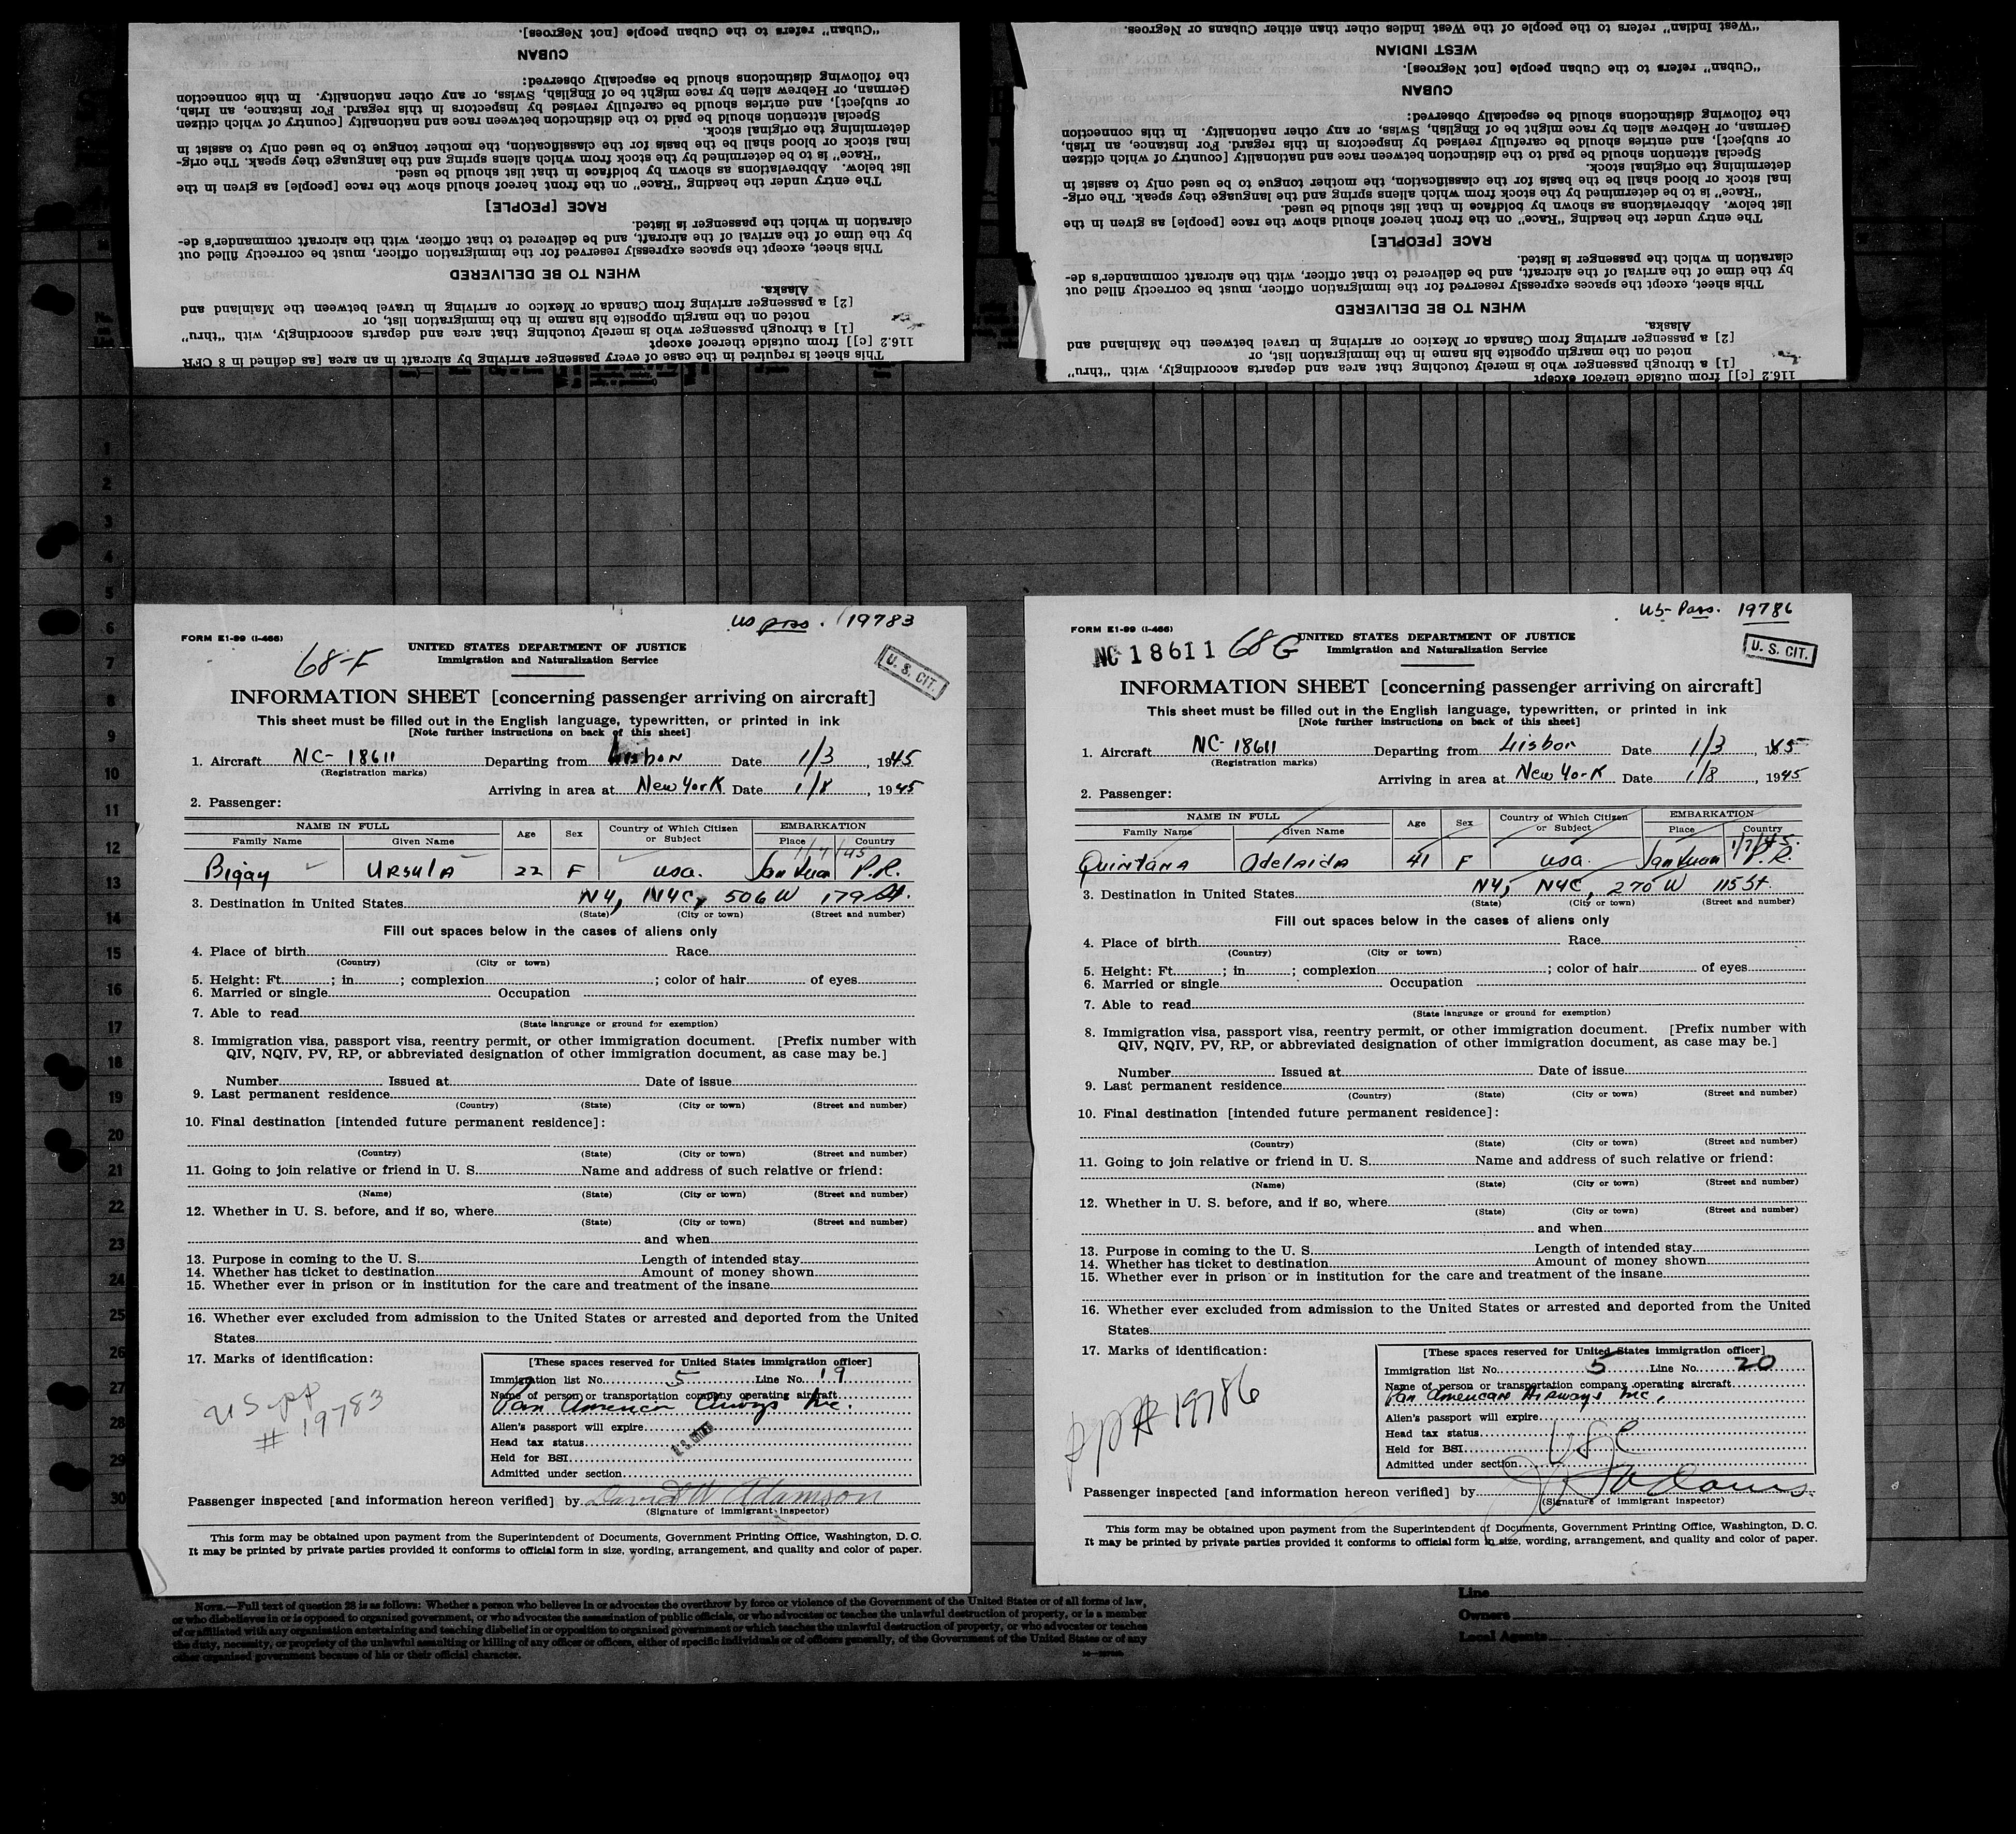 "Cuban" refers to the Cuban people [not Negroes].
CUBAN
the following distinctions should be especially observed:
German, or Hebrew alien by race might be of English, Swiss, or any other nationality. In this connection
or subject], and entries should be carefully revised by inspectors in this regard. For instance, an Irish,
Special attention should be paid to the distinction between race and nationality [country of which citizen
determining the original stock.
inal stock or blood shall be the basis for the classification, the mother tongue to be used only to assist in
"Race" is to be determined by the stock from which aliens spring and the language they speak. The orig-
list below. Abbreviations as shown by boldface in that list should be used.
The entry under the heading "Race" on the front hereof should show the race [people] as given in the
RACE [PEOPLE]
claration in which the passenger is listed.
by the time of the arrival of the aircraft, and be delivered to that officer, with the aircraft commander's de-
This sheet, except the spaces expressly reserved for the immigration officer, must be correctly filled out
WHEN TO BE DELIVERED
Alaska.
[2] a passenger arriving from Canada or Mexico or arriving in travel between the Mainland and
noted on the margin opposite his name in the immigration list, or
[1] a through passenger who is merely touching that area and departs accordingly, with "thru"
116.2 [c]] from outside thereof except
This sheet is required in the case of every passenger arriving by aircraft in an area [as defined in 8 CFR
"West Indian" refers to the people of the West Indies other than either Cubans or Negroes.
WEST INDIAN
"Cuban" refers to the Cuban people [not Negroes].
CUBAN
the following distinctions should be especially observed:
German, or Hebrew alien by race might be of English, Swiss, or any other nationality. In this connection
or subject], and entries should be carefully revised by inspectors in this regard. For instance, an Irish,
Special attention should be paid to the distinction between race and nationality [country of which citizen
determining the original stock.
inal stock or blood shall be the basis for the classification, the mother tongue to be used only to assist in
"Race" is to be determined by the stock from which aliens spring and the language they speak. The orig-
list below. Abbreviations as shown by boldface in that list should be used.
The entry under the heading "Race" on the front hereof should show the race [people] as given in the
RACE [PEOPLE]
claration in which the passenger is listed.
by the time of the arrival of the aircraft, and be delivered to that officer, with the aircraft commander's de-
This sheet, except the spaces expressly reserved for the immigration officer, must be correctly filled out
WHEN TO BE DELIVERED
Alaska.
[2] a passenger arriving from Canada or Mexico or arriving in travel between the Mainland and
noted on the margin opposite his name in the immigration list, or
[1] a through passenger who is merely touching that area and departs accordingly, with "thru"
116.2 [c]] from outside thereof except
1
2
3
4
5
6
7
8
9
10
11
12
13
14
15
16
17
18
19
20
21
22
23
24
25
26
27
28
29
30
US pass. 19783
FORM E1-99 (I-466)
68-F
UNITED STATES DEPARTMENT OF JUSTICE
Immigration and Naturalization Service
U. S. CIT.
INFORMATION SHEET [concerning passenger arriving on aircraft]
This sheet must be filled out in the English language, typewritten, or printed in ink
[Note further instructions on back of this sheet]
1. Aircraft NC- 18611 Departing from Lisbon Date 1/3, 1945
(Registration marks)
Arriving in area at New York Date 1/8, 1945
2. Passenger:
NAME IN FULL Age Sex Country of Which Citizen or Subject EMBARKATION
Family Name Given Name Place Country
1/7/45
Bigay Ursula 22 F USA. San Juan P.R.
3. Destination in United States NY, NYC, 506 W 179 St.
(State) (City or town) (Street and number)
Fill out spaces below in the cases of aliens only
4. Place of birth Race
(Country) (City or town)
5. Height: Ft. ; in ; complexion ; color of hair of eyes
6. Married or single Occupation
7. Able to read
(State language or ground for exemption)
8. Immigration visa, passport visa, reentry permit, or other immigration document. [Prefix number with
QIV, NQIV, PV, RP, or abbreviated designation of other immigration document, as case may be.]
Number Issued at Date of issue
9. Last permanent residence
(Country) (State) (City or town) (Street and number)
10. Final destination [intended future permanent residence]:
(Country) (State) (City or town) (Street and number)
11. Going to join relative or friend in U. S. Name and address of such relative or friend:
(Name) (State) (City or town) (Street and number)
12. Whether in U. S. before, and if so, where
(State) (City or town) (Street and number)
and when
13. Purpose in coming to the U. S. Length of intended stay
14. Whether has ticket to destination Amount of money shown
15. Whether ever in prison or in institution for the care and treatment of the insane
16. Whether ever excluded from admission to the United States or arrested and deported from the United
States
17. Marks of identification:
US ppt
# 19783
[These spaces reserved for United States immigration officer]
Immigration list No. 5 Line No. 19
Name of person or transportation company operating aircraft
Pan American Airways Inc.
Alien's passport will expire
Head tax status
Held for BSI
Admitted under section
Passenger inspected [and information hereon verified] by David W Adamson
(Signature of immigrant inspector)
This form may be obtained upon payment from the Superintendent of Documents, Government Printing Office, Washington, D. C.
It may be printed by private parties provided it conforms to official form in size, wording, arrangement, and quality and color of paper.
US- Pass. 19786
FORM E1-99 (I-466)
NC 18611 68G
UNITED STATES DEPARTMENT OF JUSTICE
Immigration and Naturalization Service
U. S. CIT.
INFORMATION SHEET [concerning passenger arriving on aircraft]
This sheet must be filled out in the English language, typewritten, or printed in ink
[Note further instructions on back of this sheet]
1. Aircraft NC- 18611 Departing from Lisbon Date 1/3, 1945
(Registration marks)
Arriving in area at New York Date 1/8, 1945
2. Passenger:
NAME IN FULL Age Sex Country of Which Citizen or Subject EMBARKATION
Family Name Given Name Place Country
1/7/45.
Quintana Adelaida 41 F USA. San Juan P.R.
3. Destination in United States NY, NYC, 270 W 115 St.
(State) (City or town) (Street and number)
Fill out spaces below in the cases of aliens only
4. Place of birth Race
(Country) (City or town)
5. Height: Ft. ; in ; complexion ; color of hair of eyes
6. Married or single Occupation
7. Able to read
(State language or ground for exemption)
8. Immigration visa, passport visa, reentry permit, or other immigration document. [Prefix number with
QIV, NQIV, PV, RP, or abbreviated designation of other immigration document, as case may be.]
Number Issued at Date of issue
9. Last permanent residence
(Country) (State) (City or town) (Street and number)
10. Final destination [intended future permanent residence]:
(Country) (State) (City or town) (Street and number)
11. Going to join relative or friend in U. S. Name and address of such relative or friend:
(Name) (State) (City or town) (Street and number)
12. Whether in U. S. before, and if so, where
(State) (City or town) (Street and number)
and when
13. Purpose in coming to the U. S. Length of intended stay
14. Whether has ticket to destination Amount of money shown
15. Whether ever in prison or in institution for the care and treatment of the insane
16. Whether ever excluded from admission to the United States or arrested and deported from the United
States
17. Marks of identification:
ppt# 19786
[These spaces reserved for United States immigration officer]
Immigration list No. 5 Line No. 20
Name of person or transportation company operating aircraft
Pan American Airways Inc.
Alien's passport will expire
Head tax status
Held for BSI
USC
Admitted under section
Passenger inspected [and information hereon verified] by
(Signature of immigrant inspector)
This form may be obtained upon payment from the Superintendent of Documents, Government Printing Office, Washington, D. C.
It may be printed by private parties provided it conforms to official form in size, wording, arrangement, and quality and color of paper.
NOTE.—Full text of question 28 is as follows: Whether a person who believes in or advocates the overthrow by force or violence of the Government of the United States or of all forms of law,
or who disbelieves in or is opposed to organized government, or who advocates the assassination of public officials, or who advocates or teaches the unlawful destruction of property, or is a member
of or affiliated with any organization entertaining and teaching disbelief in or opposition to organized government or which teaches the unlawful destruction of property, or who advocates or teaches
the duty, necessity, or propriety of the unlawful assaulting or killing of any officer or officers, either of specific individuals or of officers generally, of the Government of the United States or of any
other organized government because of his or their official character.
Line
Owners
Local Agents